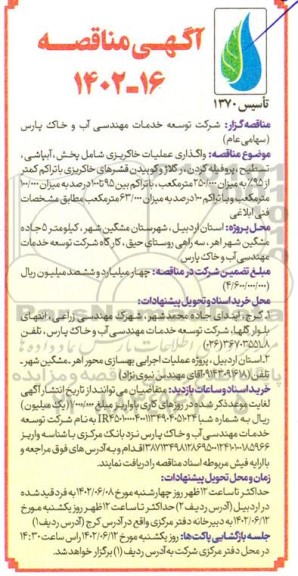 آگهی مناقصه
۱۶-۱۴۰۲
تأسیس ۱۳۷۰
مناقصه گزار: شرکت توسعه خدمات مهندسی آب و خاک پارس
(سهامی عام)
موضوع مناقصه: واگذاری عملیات خاکریزی شامل پخش، آبپاشی،
تسطیح، پروفیله کردن، رگلاژ و کوبیدن قشرهای خاکریزی با تراکم کمتر
از ۹۵٪ به میزان ۲۵۰/۰۰۰ مترمکعب، با تراکم بین ۹۵ تا ۱۰۰ درصد به میزان ۱۰۰/۰۰۰
مترمکعب و با تراکم ۱۰۰ درصد به میزان ۶۳/۰۰۰ مترمکعب مطابق مشخصات
فنی ابلاغی
محل پروژه: استان اردبیل، شهرستان مشگین شهر، کیلومتر ۵ جاده
مشگین شهر اهر، سه راهی روستای حیق، کارگاه شرکت توسعه خدمات
مهندسی آب و خاک پارس
مبلغ تضمین شرکت در مناقصه: چهار میلیارد و ششصد میلیون ریال
(۴/۶۰۰/۰۰۰/۰۰۰)
محل خرید اسناد و تحویل پیشنهادات:
۱. کرج، ابتدای جاده محمدشهر، شهرک مهندسی زراعی، انتهای
بلوار گلها، شرکت توسعه خدمات مهندسی آب و خاک پارس، تلفن
(۰۲۶)۳۶۷۰۳۵۵۱۸
۲. استان اردبیل، پروژه عملیات اجرایی بهسازی محور اهر ـ مشگین شهر ـ
تلفن ۰۹۱۴۳۰۹۱۶۸۱ آقای مهندس نبوی نژاد)
خرید اسناد و ساعات بازدید: متقاضیان می توانند از تاریخ انتشار آگهی
لغایت وعده ذکر شده در روزهای کاری با واریز مبلغ ۱/۰۰۰/۰۰۰ (یک میلیون)
ریال به شماره شبا به نام شرکت توسعه
خدمات مهندسی آب و خاک پارس نزد بانک مرکزی با شناسه واریز
اقدام و به آدرس های فوق مراجعه و
با ارایه فیش مربوطه اسناد مناقصه را دریافت نمایند.
زمان و محل تحویل پیشنهادات:
حداکثر تا ساعت ۱۲ ظهر روز چهارشنبه مورخ ۱۴۰۲/۰۶/۰۸ به فرد قید شده
در اردبیل (آدرس ردیف ۲) حداکثر تا ساعت ۱۲ ظهر روز یکشنبه مورخ
۱۴۰۲/۰۶/۱۲ به دبیرخانه دفتر مرکزی واقع در آدرس کرج (آدرس ردیف ۱)
جلسه بازگشایی پاکت ها: روز یکشنبه مورخ ۱۴۰۲/۰۶/۱۲ راس ساعت ۱۴:۳۰
در محل دفتر مرکزی شرکت به آدرس ردیف (۱) برگزار خواهد شد.